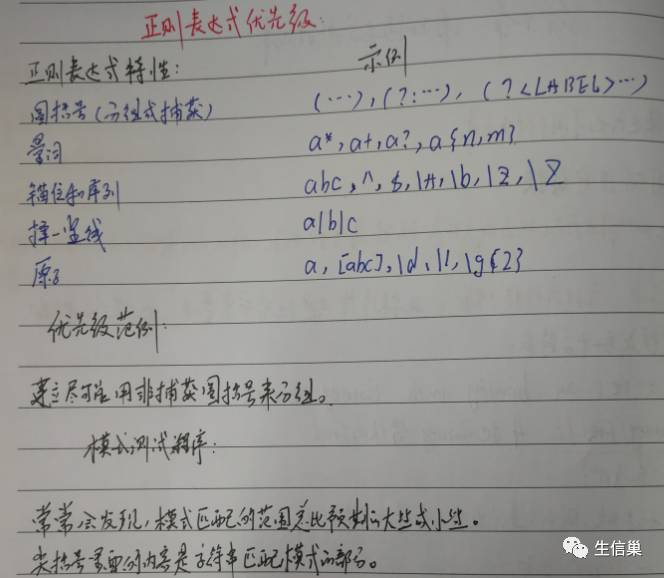 正则表达式优先级:
正则表达式特性: 示例
圆括号(分组或捕获) (…), (?:…), (?<LABEL>…)
量词 a*, a+, a?, a{n,m}
锚位和序列 abc, ^, $, \A, \b, \z, \Z
择一竖线 a|b|c
原子 a, [abc], \d, \1, \g{2}
优先级范例:
建议尽可能用非捕获圆括号来分组。
模式测试程序:
常常会发现,模式匹配的范围总比预期的大些或小些。
尖括号里面的内容是字符串匹配模式的部分。
生信巢